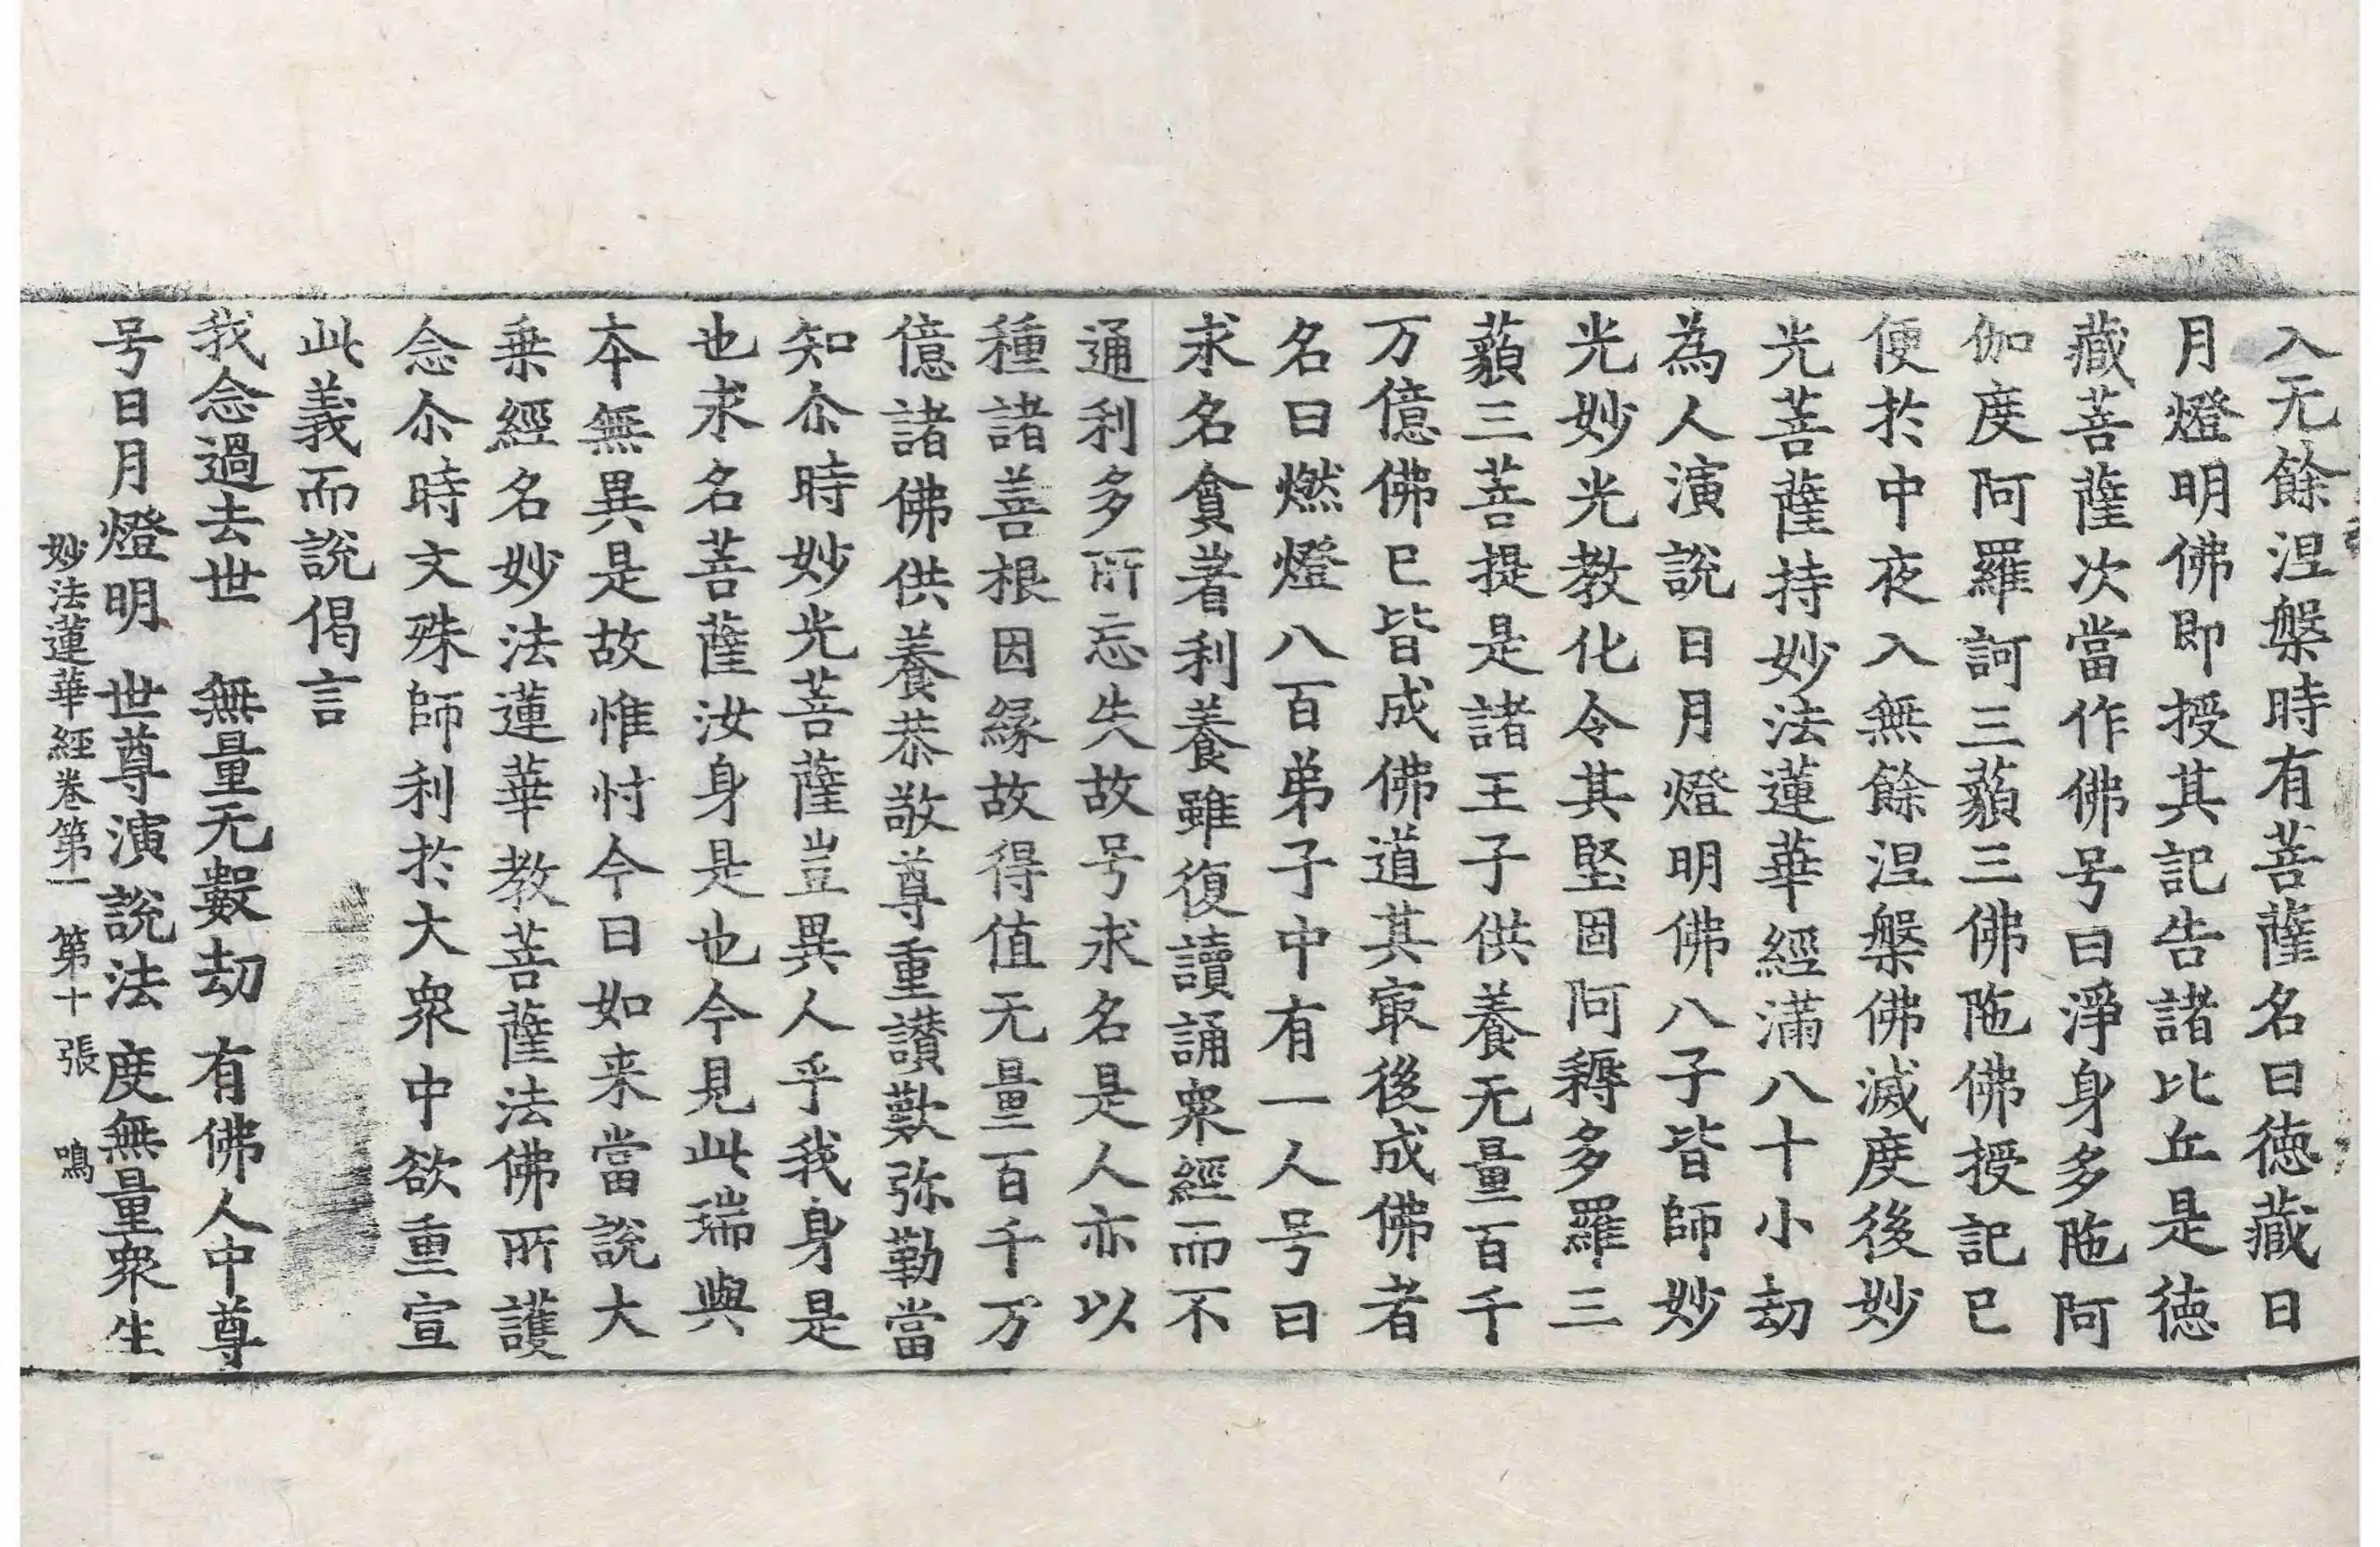 入无餘涅槃時有菩薩名曰徳藏日
月燈明佛即授其記告諸比丘是徳
藏菩薩次當作佛号曰淨身多陁阿
伽度阿羅訶三藐三佛陁佛授記已
便於中夜入無餘涅槃佛滅度後妙
光菩薩持妙法蓮華經滿八十小劫
為人演說日月燈明佛八子皆師妙
光妙光教化令其堅固阿耨多羅三
藐三菩提是諸王子供養无量百千
万億佛已皆成佛道其㝡後成佛者
名曰燃燈八百弟子中有一人号曰
求名貪著利養雖復讀誦衆經而不
通利多所忘失故号求名是人亦以
種諸善根因緣故得值无量百千万
億諸佛供養恭敬尊重讃歎弥勒當
知尒時妙光菩薩豈異人乎我身是
也求名菩薩汝身是也今見此瑞與
本無異是故惟忖今日如来當說大
乗經名妙法蓮華教菩薩法佛所護
念尒時文殊師利於大衆中欲重宣
此義而說偈言
我念過去世　無量无數劫　有佛人中尊
号日月燈明　世尊演說法　度無量衆生
妙法蓮華經卷第一　第十張　鳴